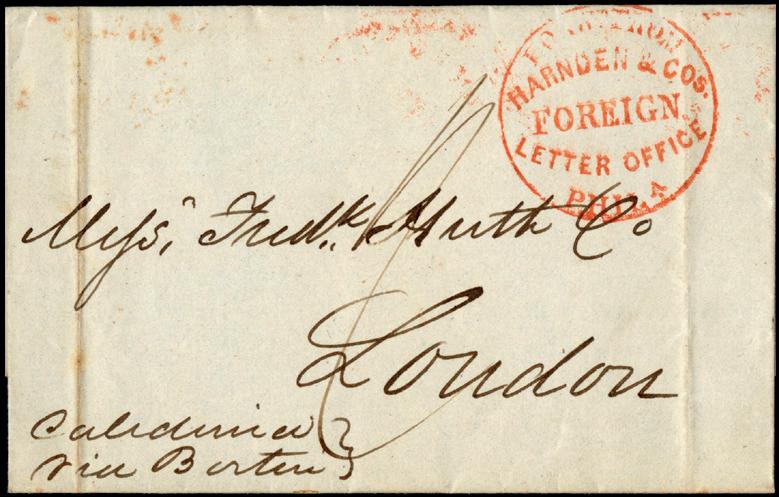 FORW'D FROM
HARNDEN & COS.
FOREIGN
LETTER OFFICE
PHILA
Mess.rs Fredk. Huth & Co
London
Caledonia
via Boston